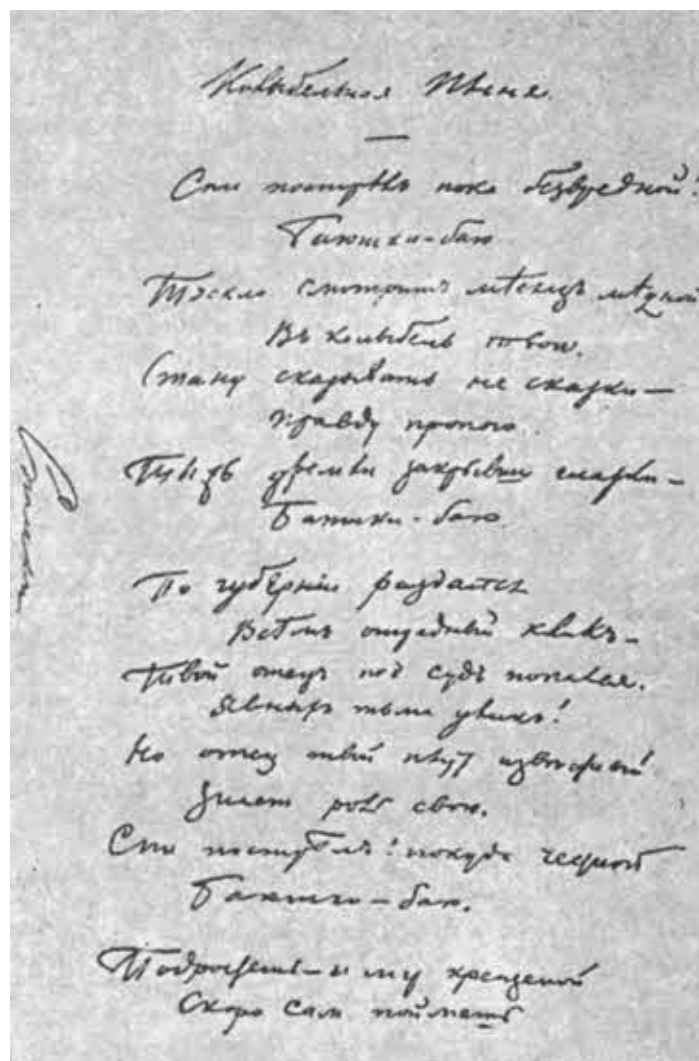 Колыбельная Пѣсня.
Спи пострѣлъ пока безвредной!
Баюшки-баю
Тускло смотритъ мѣсяцъ мѣдной
Въ колыбель твою.
Стану сказывать не сказки—
Правду пропою.
Ты жъ дремли закрывши глазки—
Баюшки-баю
По губерніи раздался
Всѣмъ отрадный кликъ—
Твой отецъ под судъ попался.
Явныхъ тьма уликъ!
Но отец твой плут
Знает роль свою.
Спи пострѣлъ! покуда честной
Баюшки-баю.
Подростешь—и міръ крещеной
Скоро сам поймешь